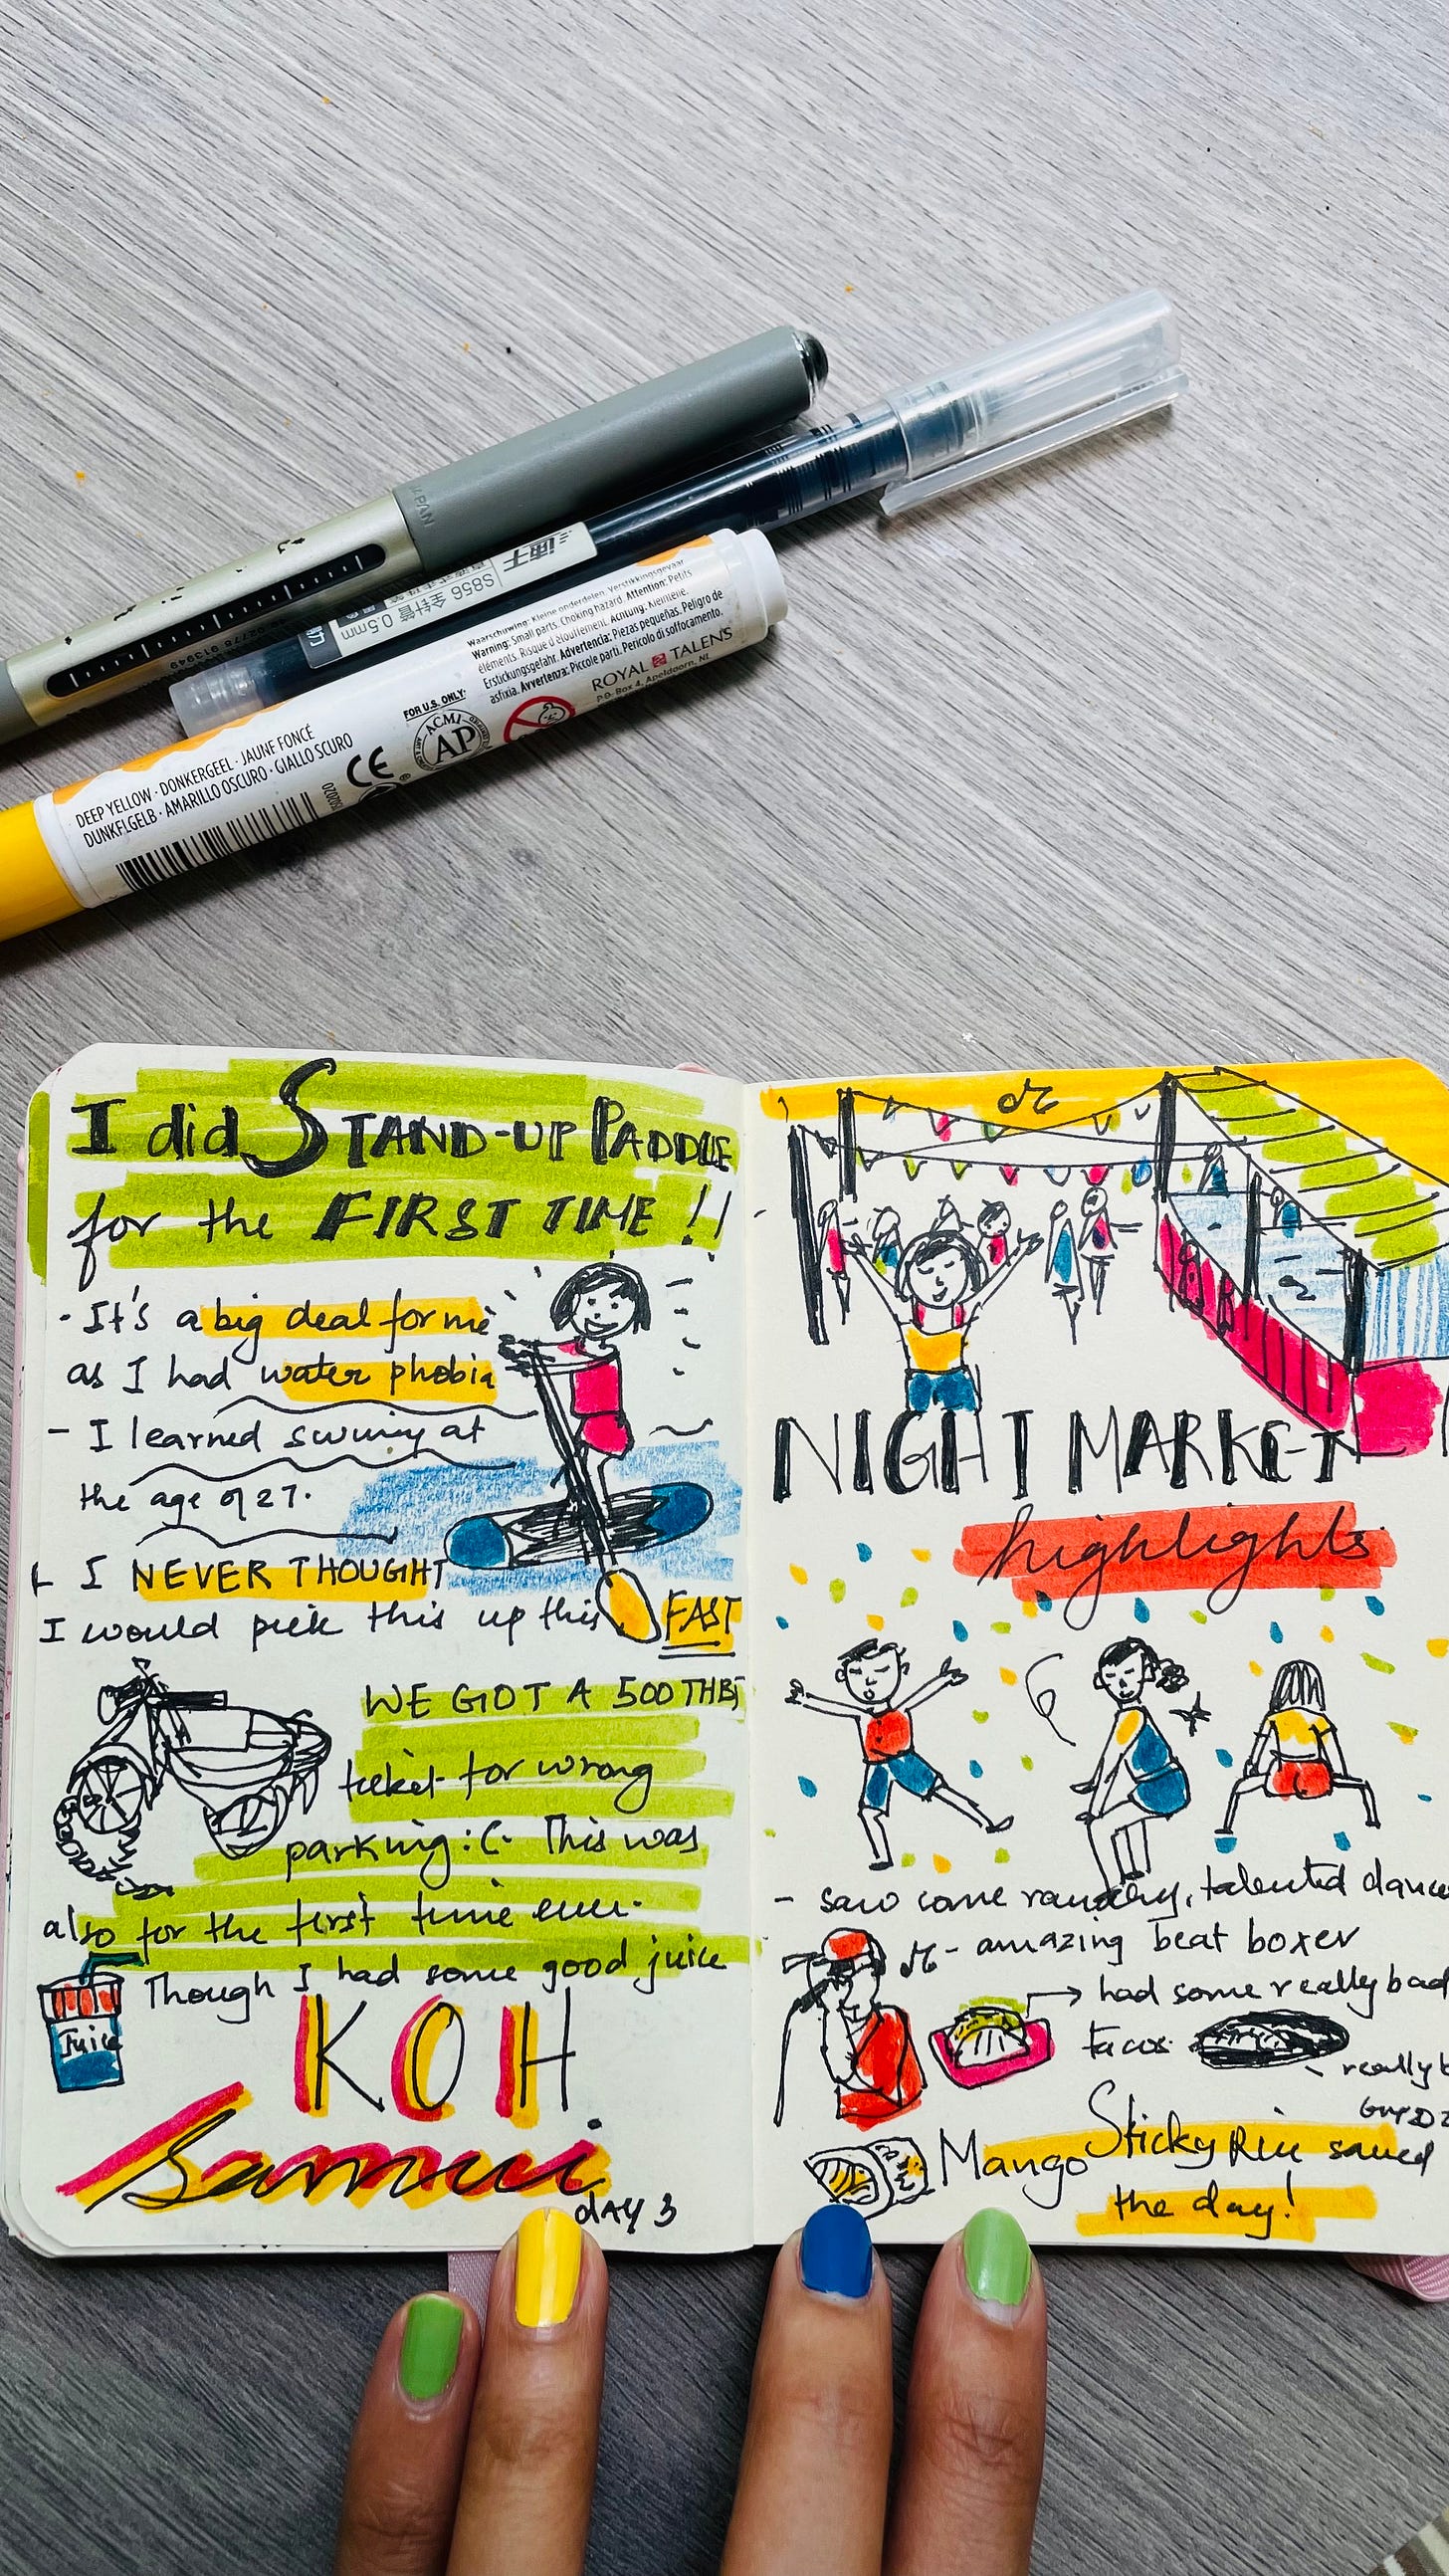 JAPAN
S856 全针管 0.5mm
Waarschuwing: Kleine onderdelen. Verstikkingsgevaar.
Warning: Small parts. Choking hazard. Attention: Petits
éléments. Risque d'étouffement. Achtung: Kleinteile.
Erstickungsgefahr. Advertencia: Piezas pequeñas. Peligro de
asfixia. Avvertenza: Piccole parti. Pericolo di soffocamento.
ROYAL TALENS
P.O. Box 4, Apeldoorn, NL
FOR U.S. ONLY:
ACMI
AP
CE
DEEP YELLOW · DONKERGEEL · JAUNE FONCÉ
DUNKELGELB · AMARILLO OSCURO · GIALLO SCURO
I did STAND-UP PADDLE
for the FIRST TIME !!
- It's a big deal for me
as I had water phobia
- I learned swimming at
the age of 27.
- I NEVER THOUGHT
I would pick this up this FAST
WE GOT A 500 THB
ticket for wrong
parking :(. This was
also for the first time ever.
Though I had some good juice
Juice
KOH
Samui
DAY 3
NIGHT MARKET
highlights
- saw some raunchy, talented dance
- amazing beat boxer
had some really bad
tacos
really
Mango Sticky Rice saved
the day!